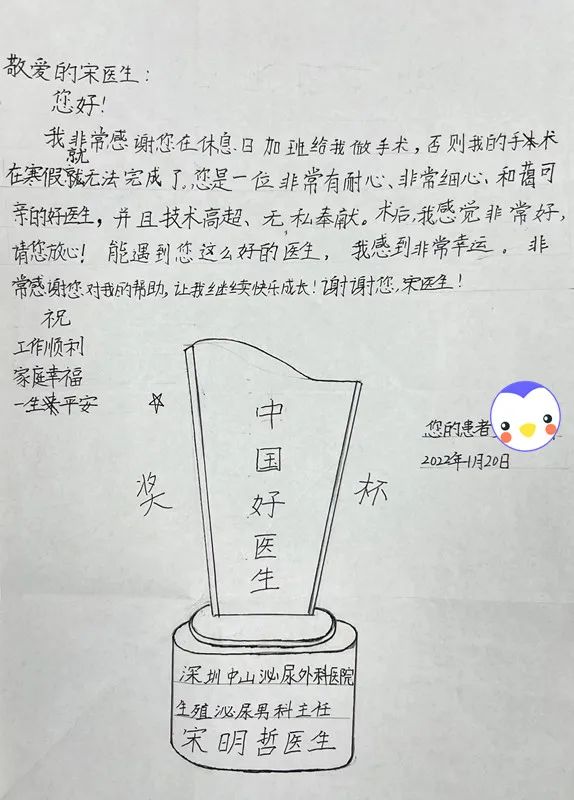 敬爱的宋医生：
您好！
我非常感谢您在休息日加班给我做手术，否则我的手术
在寒假就无法完成了。您是一位非常有耐心、非常细心、和蔼可
亲的好医生，并且技术高超、无私奉献。术后，我感觉非常好，
请您放心！能遇到您这么好的医生，我感到非常幸运。非
常感谢您对我的帮助，让我继续快乐成长！谢谢您，宋医生！
祝
工作顺利
家庭幸福
一生平安
您的患者
2022年11月20日
奖杯
中国好医生
深圳中山泌尿外科医院
生殖泌尿男科主任
宋明哲医生